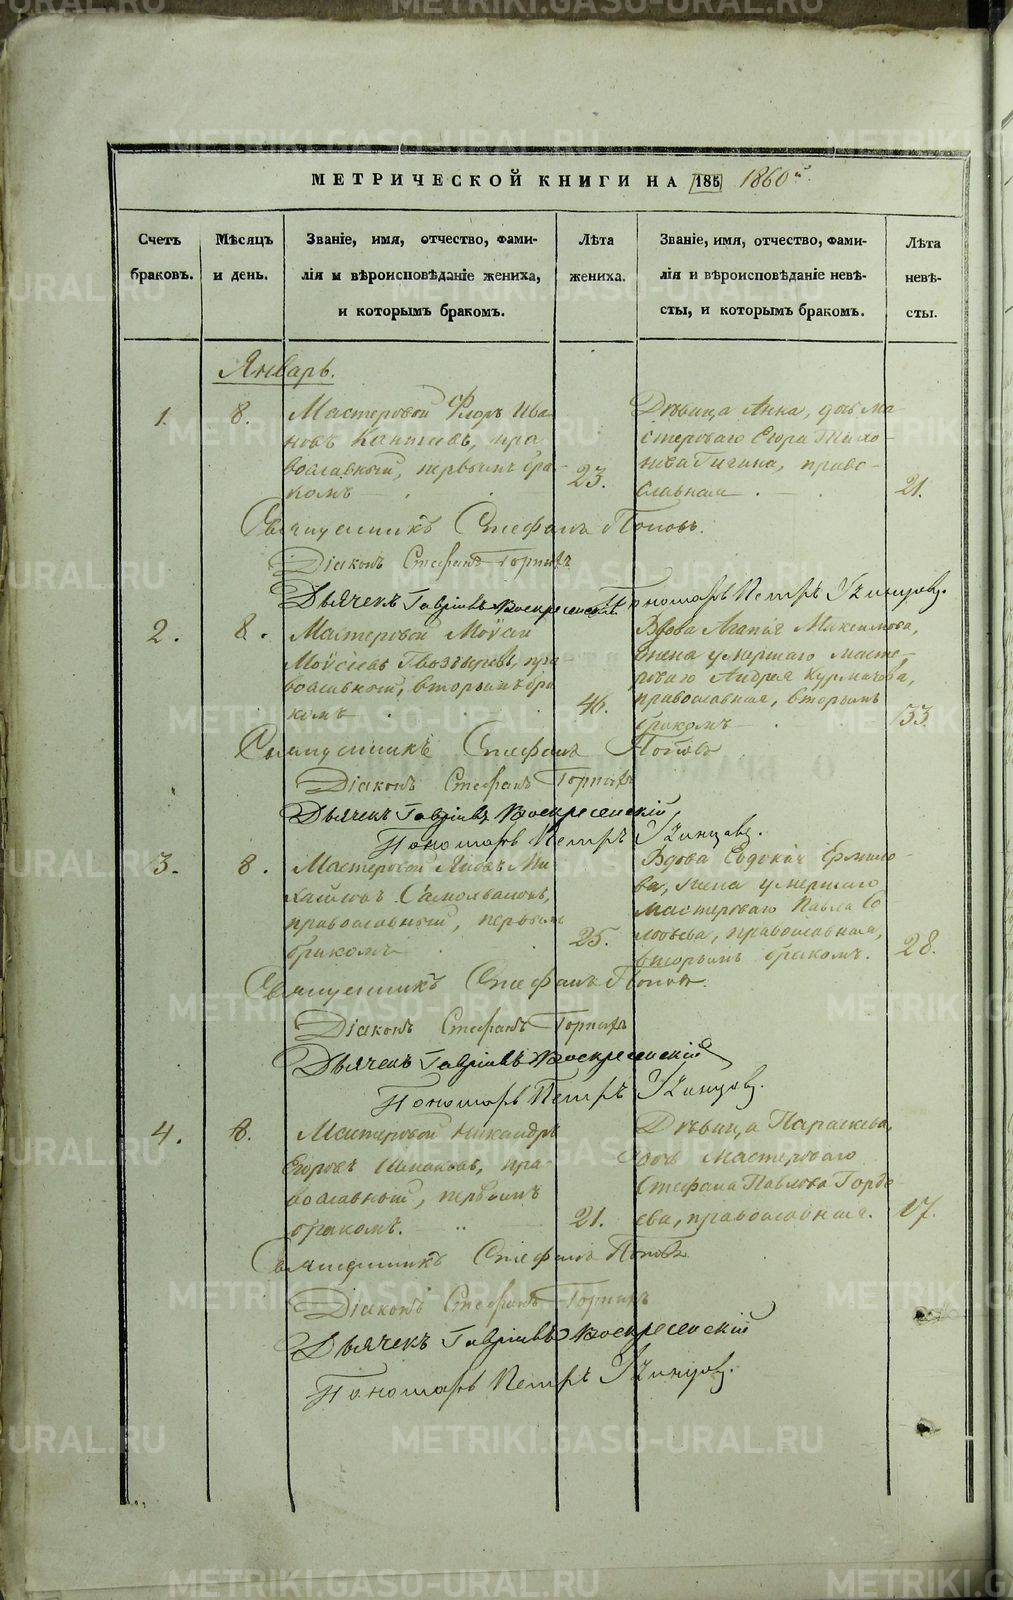 МЕТРИЧЕСКОЙ КНИГИ НА 185 1860й.
Счетъ браковъ.
Мѣсяцъ и день.
Званіе, имя, отчество, фами-
лія и вѣроисповѣданіе жениха,
и которымъ бракомъ.
Лѣта жениха.
Званіе, имя, отчество, фами-
лія и вѣроисповѣданіе невѣ-
сты, и которымъ бракомъ.
Лѣта невѣ-
сты.
Январь.
1.
8.
Мастеровой Флоръ Ива-
новъ, пра-
вославный, первымъ бра-
комъ
23.
Дѣвица Анна, дочь Ма-
стероваго Егора Тихо-
нова, право-
славная.
21.
Священникъ Стефанъ Поповъ.
Діаконъ Стефанъ
Дьячекъ Гавріилъ Воскресенскій Пономарь Петръ
2.
8.
Мастеровой Моѵсей
Моѵсеевъ, пра-
вославный, вторымъ бра-
комъ
46.
Вдова Агапія Максимова,
жена умершаго масте-
роваго Андрея Курмачова,
православная, вторымъ
бракомъ
33
Священникъ Стефанъ Поповъ
Діаконъ Стефанъ
Дьячекъ Гавріилъ Воскресенскій
Пономарь Петръ
3.
8.
Мастеровой Ми-
хайловъ Самохваловъ,
православный, первымъ
бракомъ
25.
Вдова Евдокія Ермило-
ва, жена умершаго
мастероваго Павла Со-
ловьева, православная,
вторымъ бракомъ.
28.
Священникъ Стефанъ Поповъ.
Діаконъ Стефанъ
Дьячекъ Гавріилъ Воскресенскій
Пономарь Петръ
4.
8.
Мастеровой Никандръ
Егоровъ, пра-
вославный, первымъ
бракомъ.
21.
Дѣвица Параскева,
дочь мастероваго
Стефана Павлова Горде-
ева, православная.
17.
Священникъ Стефанъ Поповъ
Діаконъ Стефанъ
Дьячекъ Гавріилъ Воскресенскій
Пономарь Петръ
METRIKI.GASO-URAL.RU